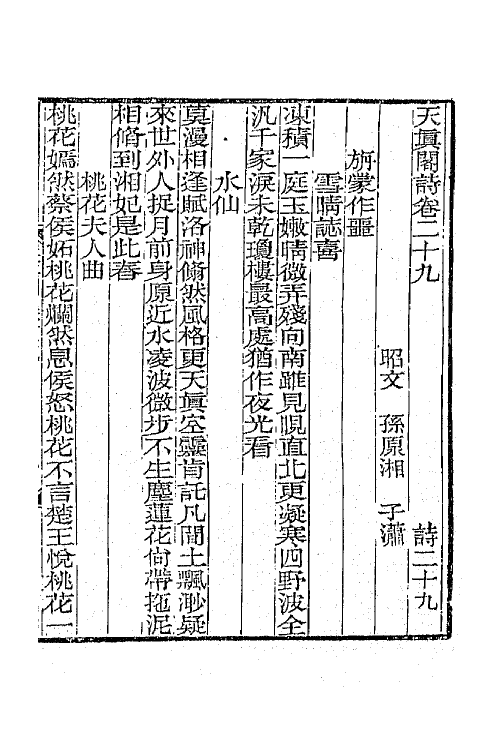 天眞閣詩卷二十九 詩二十九
昭文 孫原湘 子瀟
旃蒙作噩
雪晴誌喜
凍積一庭玉嫩晴微弄殘向南雖見晛直北更凝寒四野波全
汎千家淚未乾瓊樓最高處猶作夜光看
水仙
莫漫相逢賦洛神翛然風格更天眞空靈肯託凡間土飄渺疑
來世外人捉月前身原近水凌波微步不生塵蓮花尙帶拖泥
相脩到湘妃是此春
桃花夫人曲
桃花嫣然蔡侯妬桃花爛然息侯怒桃花不言楚王悅桃花一